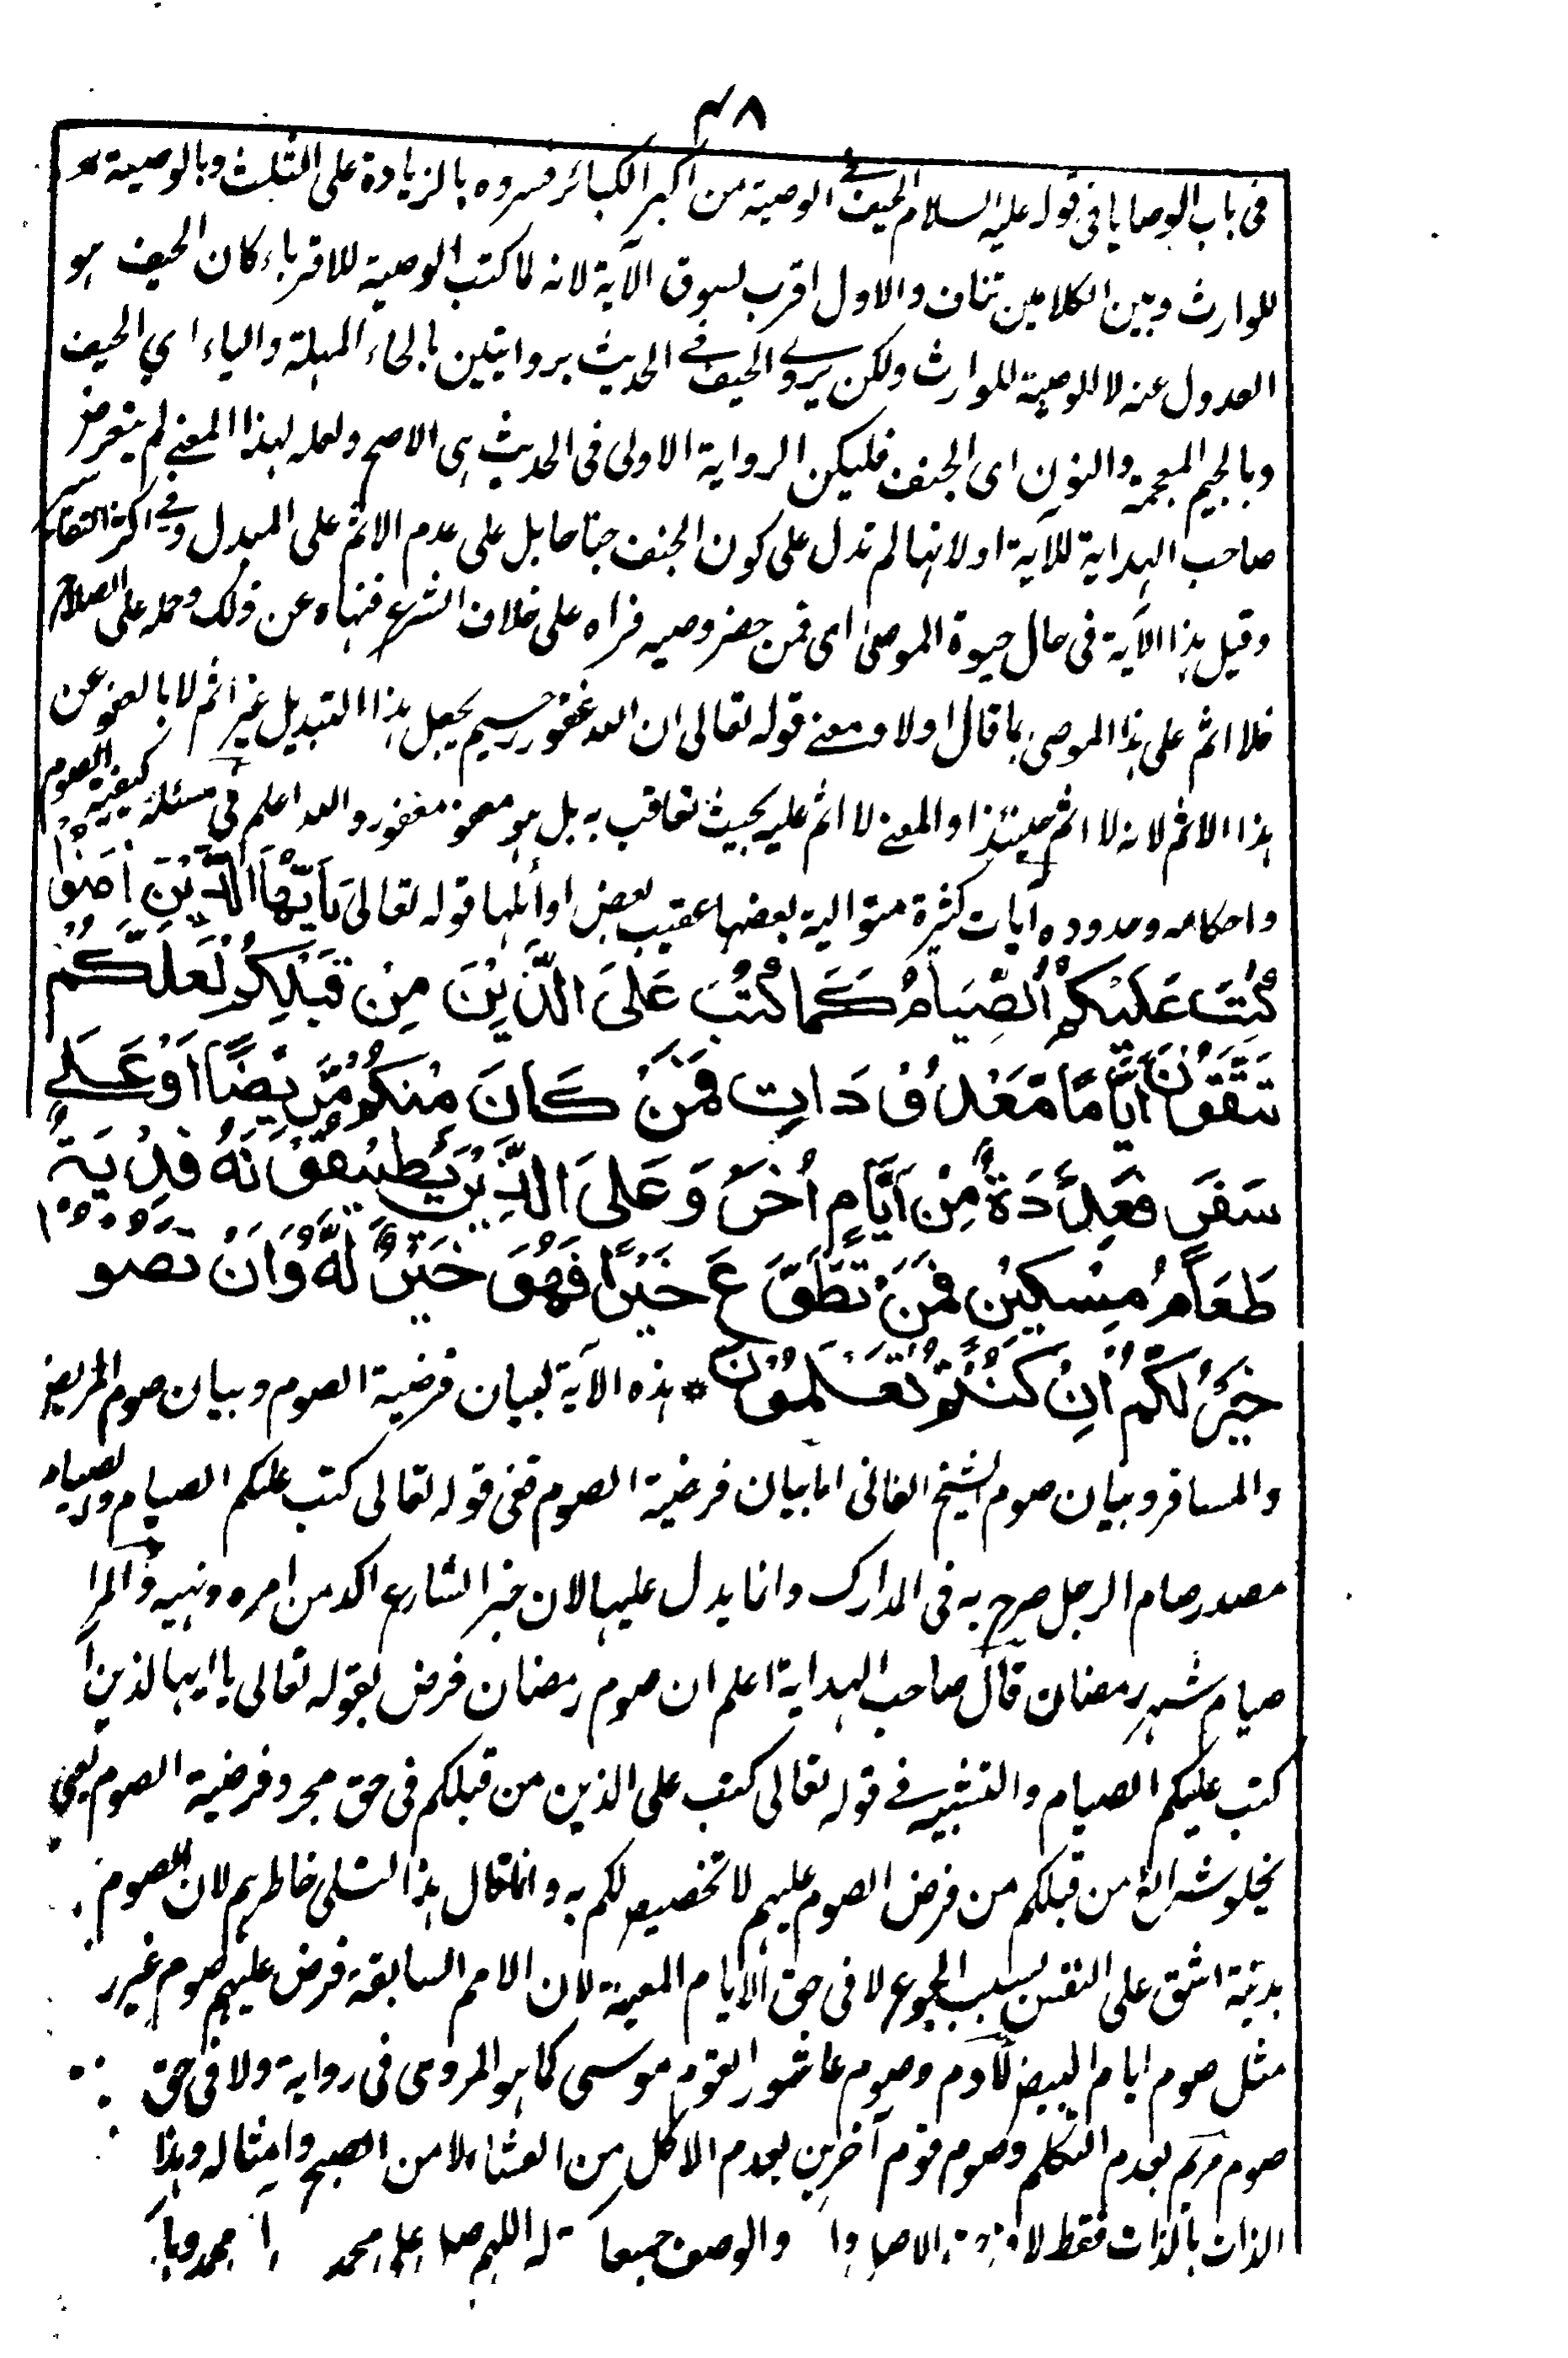 ٤٨
فى باب الوصايا فى قوله عليه السلام الحيف فى الوصية من اكبر الكبائر فسروه بالزيادة على الثلث وبالوصية
للوارث وبين الكلامين تناف والاول اقرب لسوق الآية لانه لما كتب الوصية للاقرباء كان الحيف هو
العدول عنه لا للوصية للوارث ولكن يروى الحيف فى الحديث بروايتين بالحاء المهملة والياء اى الحيف
وبالجيم المعجمة والنون اى الجنف فليكن الرواية الاولى فى الحديث هى الاصح ولعله لهذا المعنى لم يتعرض
صاحب الهداية للآية او لانها لم تدل على كون الجنف جناحا بل على عدم الاثم على المبدل وفى اكثر التفاسير
وقيل هذا الآية فى حال حيوة الموصى اى فمن حضر وصيه فراه على خلاف الشرع فنهاه عن ذلك وحمله على الصلاح
فلا اثم على هذا الموصى بما قال اولا ومعنى قوله تعالى ان الله غفور رحيم يجعل هذا التبديل غير اثم لا بالعفو عن
هذا الاثم لانه لا اثم حينئذ او المعنى لا اثم عليه بحيث تعاقب به بل هو معفو مغفور والله اعلم فى مسئلة كيفية الصوم
واحكامه وحدوده آيات كثيرة متوالية بعضها عقيب بعض اوائلها قوله تعالى يٰاَيُّهَا الَّذِيْنَ اٰمَنُوْا
كُتِبَ عَلَيْكُمُ الصِّيَامُ كَمَا كُتِبَ عَلَى الَّذِيْنَ مِنْ قَبْلِكُمْ لَعَلَّكُمْ
تَتَّقُوْنَ اَيَّامًا مَّعْدُوْدَاتٍ فَمَنْ كَانَ مِنْكُمْ مَّرِيْضًا اَوْ عَلٰى
سَفَرٍ فَعِدَّةٌ مِّنْ اَيَّامٍ اُخَرَ وَعَلَى الَّذِيْنَ يُطِيْقُوْنَهُ فِدْيَةٌ
طَعَامُ مِسْكِيْنٍ فَمَنْ تَطَوَّعَ خَيْرًا فَهُوَ خَيْرٌ لَّهُ وَاَنْ تَصُوْمُوْا
خَيْرٌ لَّكُمْ اِنْ كُنْتُمْ تَعْلَمُوْنَ * هذه الآية لبيان فرضية الصوم وبيان صوم المريض
والمسافر وبيان صوم الشيخ الفانى اما بيان فرضية الصوم ففى قوله تعالى كتب عليكم الصيام والصيام
مصدر صام الرجل صرح به فى المدارك وانما يدل عليها لان خبر الشارع اكد من امره ونهيه والمراد
صيام شهر رمضان قال صاحب الهداية اعلم ان صوم رمضان فرض لقوله تعالى يا ايها الذين
كتب عليكم الصيام والتشبيه فى قوله تعالى كتب على الذين من قبلكم فى حق مجرد فرضية الصوم يعنى
يخلو شرائع من قبلكم من فرض الصوم عليهم لا تخصيص لكم به وانما قال هذا لتسلى خاطرهم لان الصوم
بدنية اشق على النفس بسبب الجوع لا فى حق الايام المعينة لان الامم السابقة فرض عليهم صوم غير
مثل صوم ايام البيض لآدم وصوم عاشورا لقوم موسى كما هو المروى فى رواية ولا فى حق
صوم مريم بعدم التكلم وصوم قوم آخرين بعدم الاكل من العشاء لا من الصبح وامثاله وهذا
الذات بالذات فقط والوصف جميعا اللهم صل على محمد